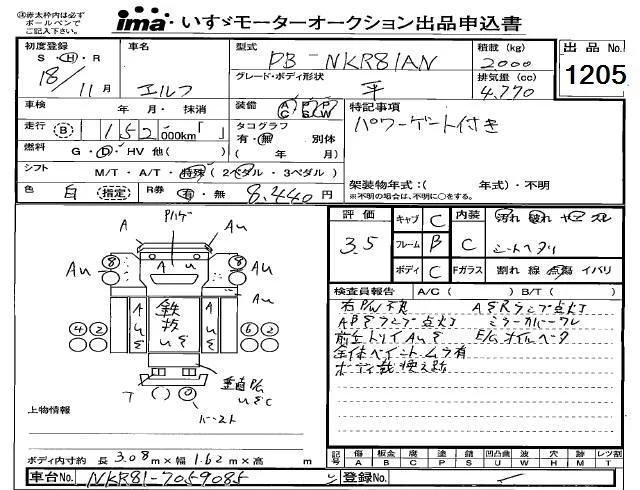 ㊟赤太枠内は必ず
ボールペンで
ご記入下さい。
ima いすゞモーターオークション出品申込書
初度登録 S・H・R 18/11月
車名 エルフ
型式 PB-NKR81AN
グレード・ボディ形状 平
積載 (kg) 2000
排気量 (cc) 4.770
出品No. 1205
車検 年 月・抹消
装備 AC PS PW
特記事項
パワーゲート付き
走行 (B) 152 000km「 」
タコグラフ 有・無 別体
( 年 月)
燃料 G・D・HV 他( )
シフト M/T・A/T・特殊 (2ペダル・3ペダル)
架装物年式:( 年式)・不明
※不明の場合は、不明に○をする。
色 白 (指定)
R券 有・無 8.440円
評価 3.5
キャブ C
フレーム B
ボディ C
内装 C
Fガラス
汚れ 破れ ヤニ
シートヘタリ
割れ 線 点傷 イバリ
検査員報告 A/C( ) B/T( )
右P/W不良
ABSランプ点灯
ミラーカバーワレ
E/Gオイル
全体ペイントムラ有
ボディ載換え跡
A Pハゲ A
8 8
Au Au
A u
鉄板
4 2 6 2
T バースト
上物情報
ボディ内寸約 長 3.08m×幅 1.62m×高 m
記号 傷 A 板金 B 腐 C 塗 P 錆 S 凹凸曲 U 波 W 穴 H 跡 M レツ割 T
車台No. NKR81-7059085
登録No.